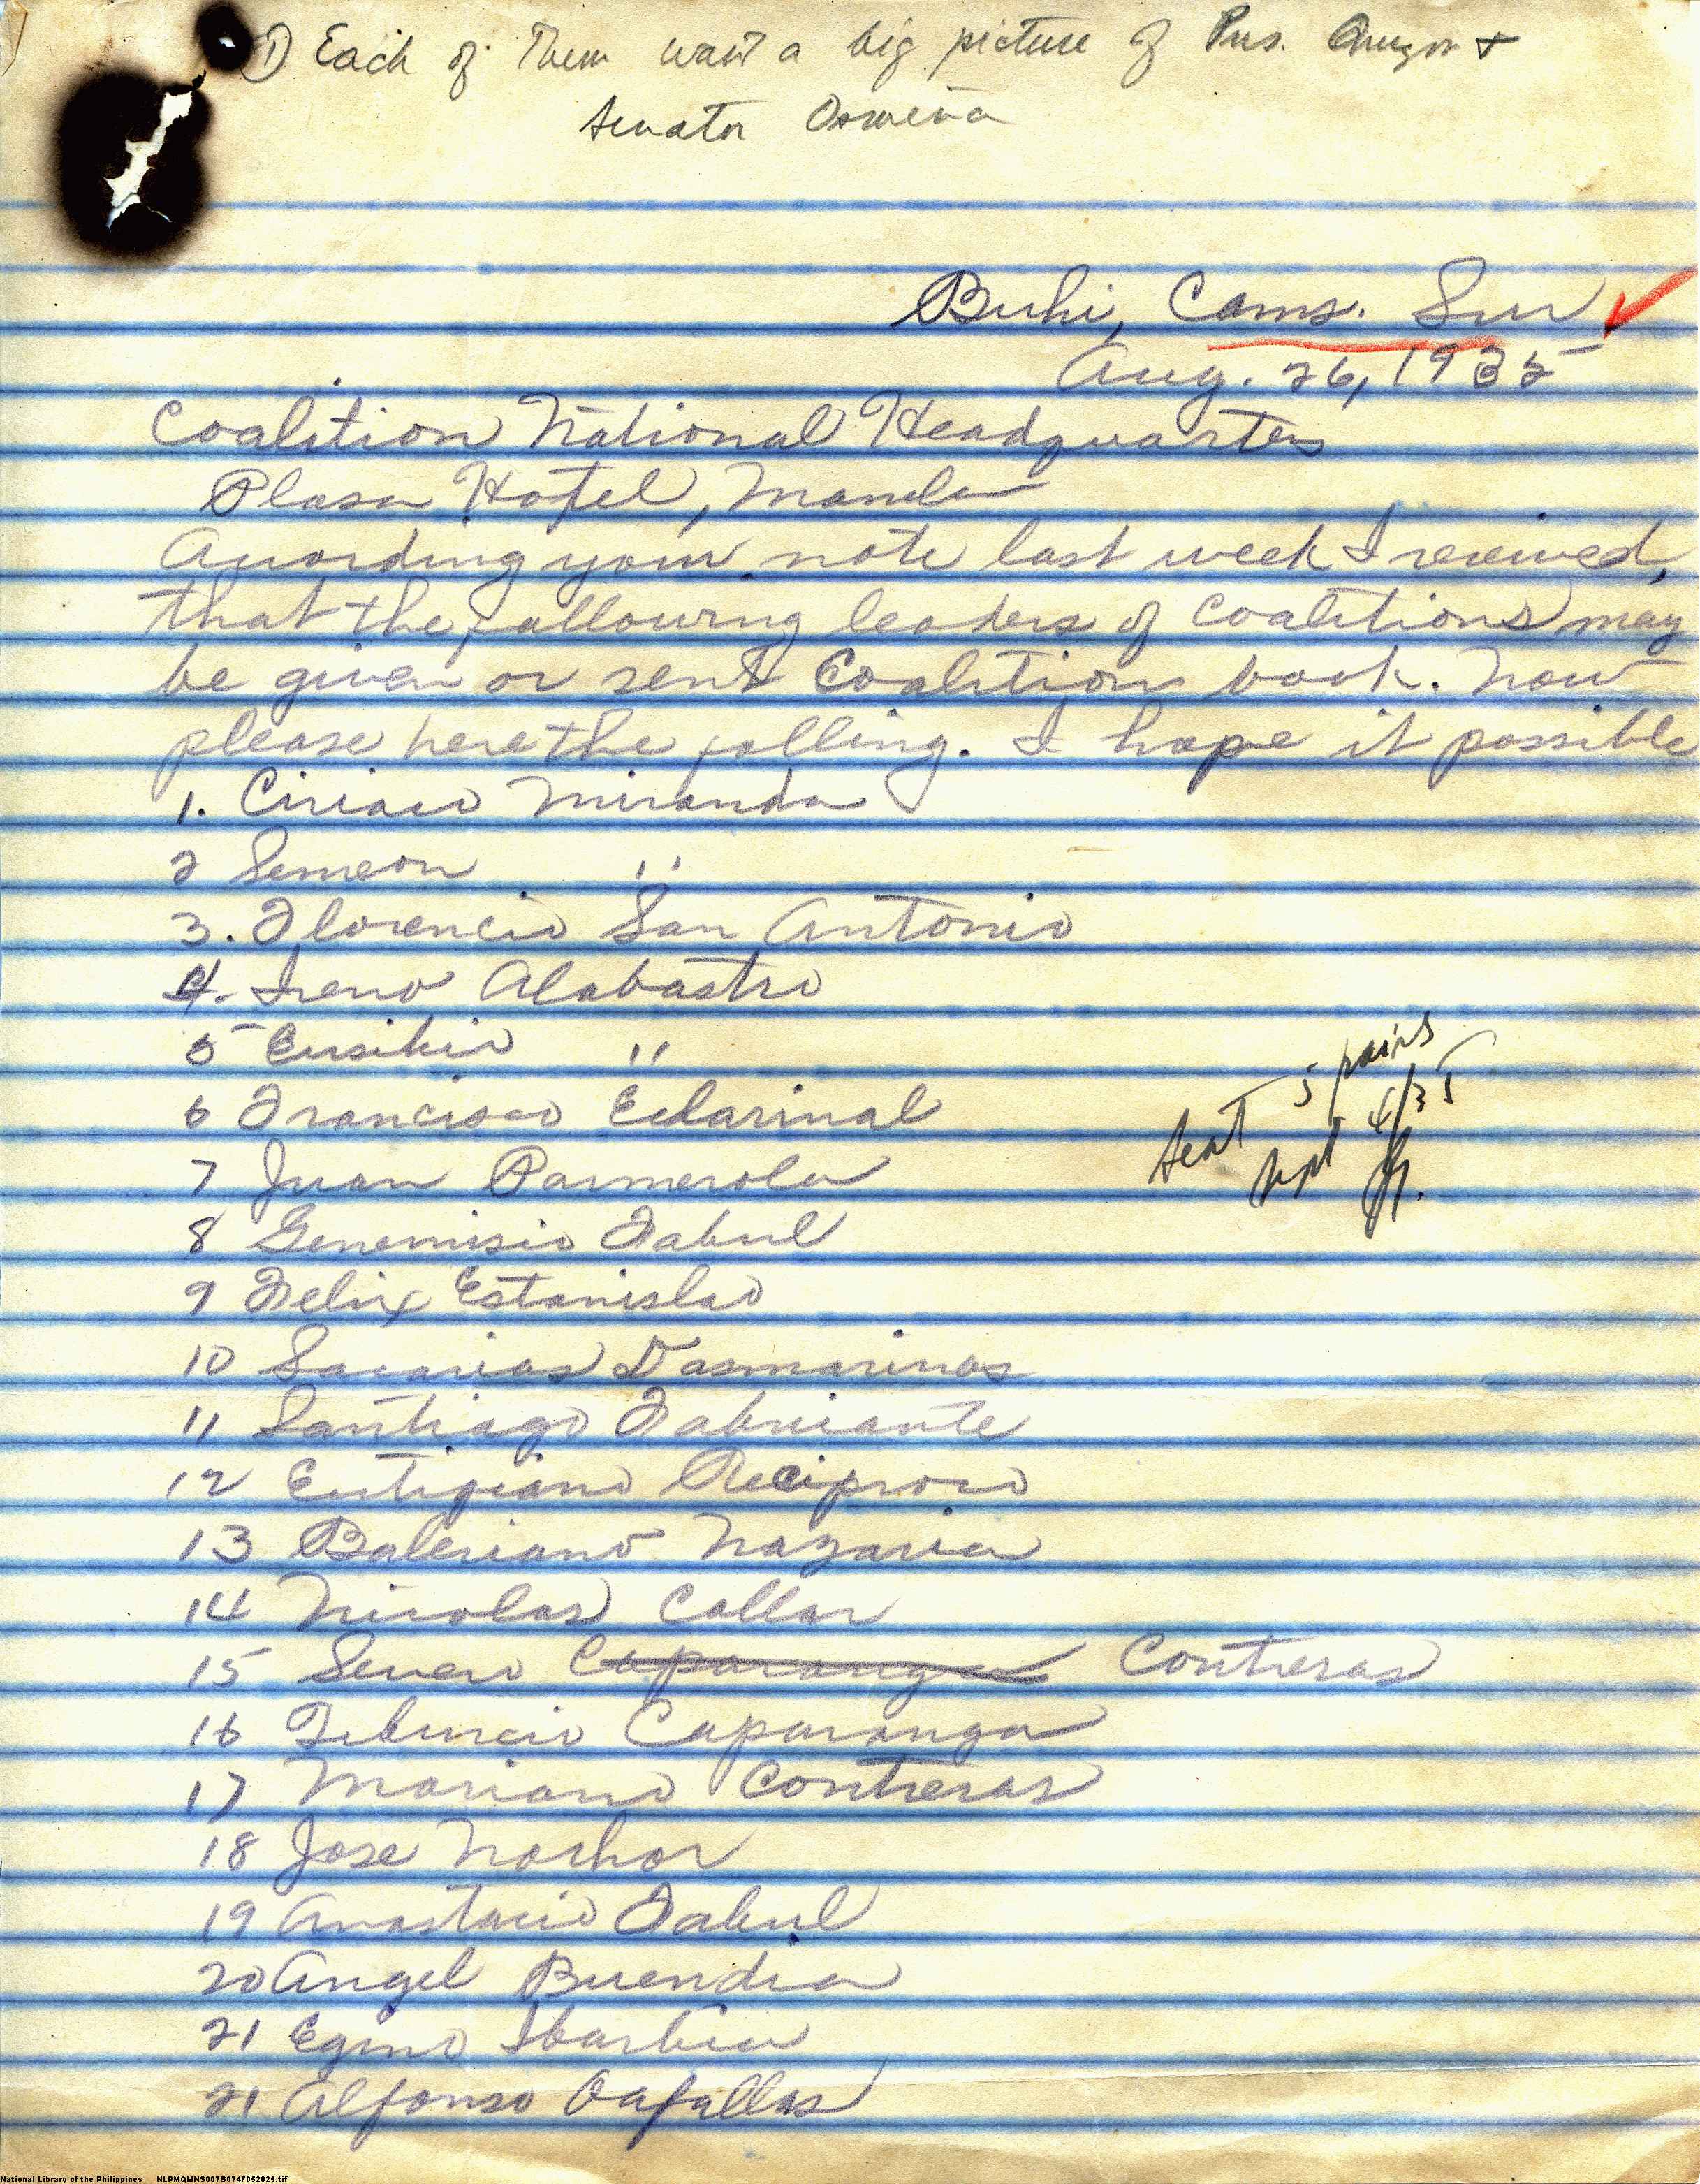 ① Each of them want a big picture of Pres. Quezon &
Senator Osmeña
Buhi, Cams. Sur
Aug. 26, 1935
Coalition National Headquarters
Plasa Hotel, Manila
Acording your note last week I received,
that the following leaders of Coalitions may
be given or sent Coalition book. Now
please here the folling. I hope it possible
1. Ciriaco Miranda
2 Semeon "
3. Florencio San Antonio
4. Ireno Alabastro
5 Eusibio "
6 Francisco
7 Juan Pamerola
8 Genemisio Fabul
9 Felix Estanislao
10 Sacarias Dasmarinas
11 Santiago Fabriante
12 Eutiqiano Reciproco
13 Baleriano Nazaria
14 Nicolas Collar
15 Severo Caparanga Contreras
16 Tiburcio Caparanga
17 Mariano Contreras
18 Jose
19 Anastacio Fabul
20 Angel Buendia
21 Egino Ibarbia
21 Alfonso
5 pairs
sent
Sept 4/35
National Library of the Philippines NLPMQMNS007B074F052025.tif